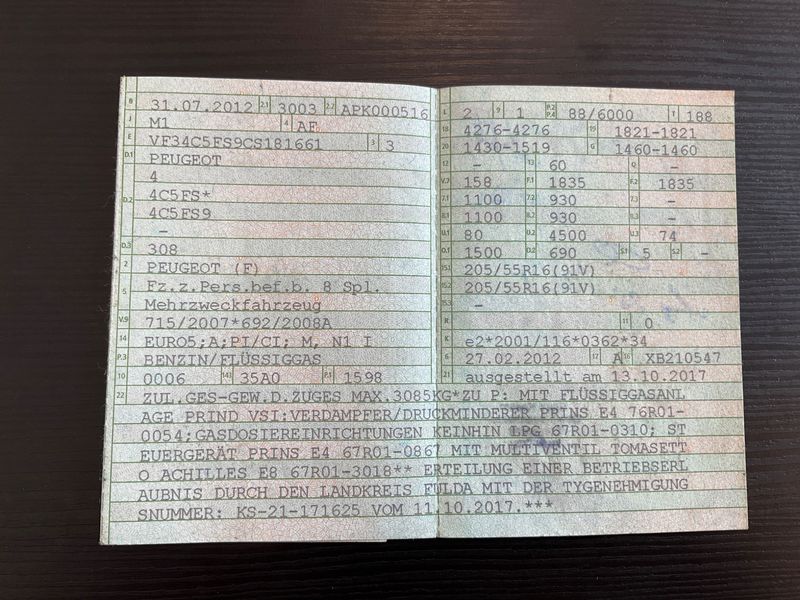 B 31.07.2012 2.1 3003 2.2 APK000516
J M1 4 AF
E VF34C5FS9CS181661 3 3
D.1 PEUGEOT
4
D.2 4C5FS*
4C5FS9
–
D.3 308
2 PEUGEOT (F)
5 Fz.z.Pers.bef.b. 8 Spl.
Mehrzweckfahrzeug
V.9 715/2007*692/2008A
14 EURO5;A;PI/CI; M, N1 I
P.3 BENZIN/FLÜSSIGGAS
10 0006 14.1 35A0 P.1 1598
L 2 9 1 P.2 P.4 88/6000 T 188
18 4276-4276 19 1821-1821
20 1430-1519 G 1460-1460
12 – 13 60 Q –
V.7 158 F.1 1835 F.2 1835
7.1 1100 7.2 930 7.3 –
8.1 1100 8.2 930 8.3 –
U.1 80 U.2 4500 U.3 74
O.1 1500 O.2 690 S.1 5 S.2 –
15.1 205/55R16(91V)
15.2 205/55R16(91V)
15.3 –
R 11 0
K e2*2001/116*0362*34
6 27.02.2012 17 A 16 XB210547
21 ausgestellt am 13.10.2017
22 ZUL.GES-GEW.D.ZUGES MAX.3085KG*ZU P: MIT FLÜSSIGGASANL
AGE PRIND VSI:VERDAMPFER/DRUCKMINDERER PRINS E4 76R01-
0054;GASDOSIEREINRICHTUNGEN KEINHIN LPG 67R01-0310; ST
EUERGERÄT PRINS E4 67R01-0867 MIT MULTIVENTIL TOMASETT
O ACHILLES E8 67R01-3018** ERTEILUNG EINER BETRIEBSERL
AUBNIS DURCH DEN LANDKREIS FULDA MIT DER TYGENEHMIGUNG
SNUMMER: KS-21-171625 VOM 11.10.2017.***